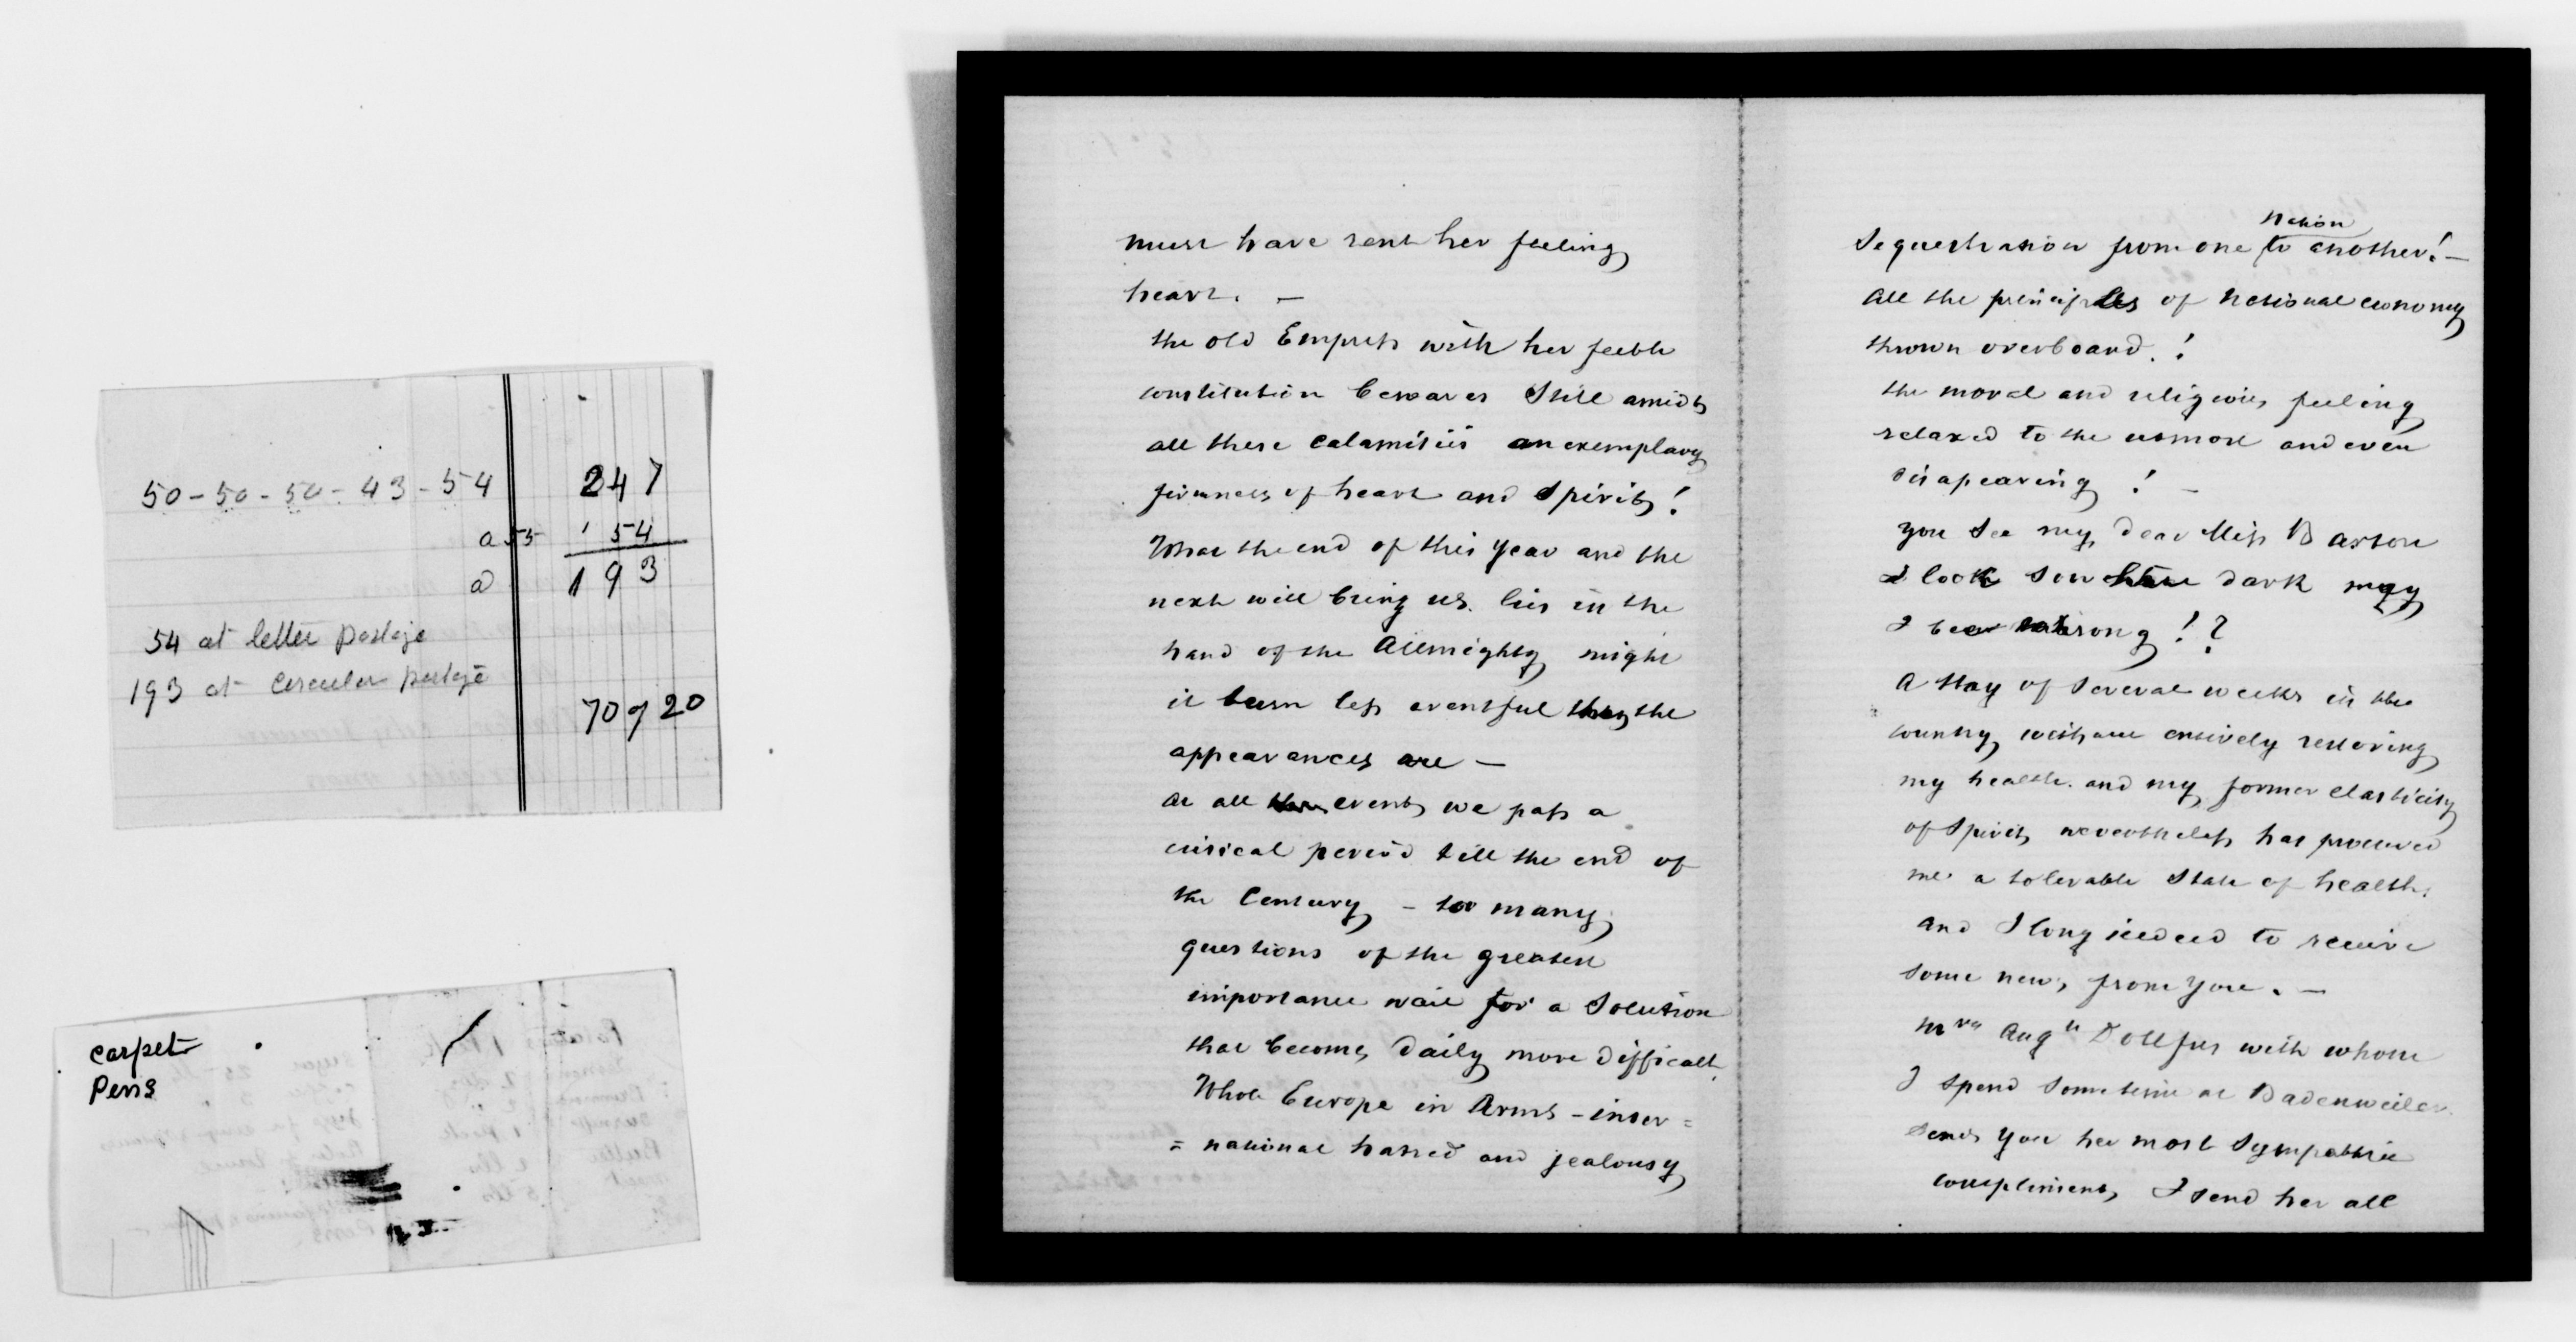 50-50-50-43-54 247
a 55 154
a 193
54 at letter postage
193 at circular postage
70720
carpet
Pens
must have rent her feeling
heart. —
the old Empress with her feeble
constitution bewares still amidst
all these calamities an exemplary
firmness of heart and spirits!
What the end of this year and the
next will bring us. lies in the
hand of the Allmighty might
it been less eventful than the
appearances are —
At all events we pass a
critical period till the end of
the Century - too many
questions of the greatest
importance wait for a solution
that becomes daily more difficult
Whole Europe in Arms - inter =
= national hatred and jealousy
Nation
Sequestration from one to another! —
All the principles of national economy
thrown overboard.!
the moral and religious feeling
relaxed to the utmost and even
disapearing ! —
you see my dear Miss Barton
I look somehow dark may
I be wrong!?
A stay of several weeks in the
country, without entirely restoring
my health. and my former elasticity
of spirits, nevertheless has procured
me a tolerable state of health.
and I long indeed to receive
some news from you. —
Mrs Augte Dollfus with whom
I spend sometime at Badenweiler
sends you her most sympathic
compliments, I send her all